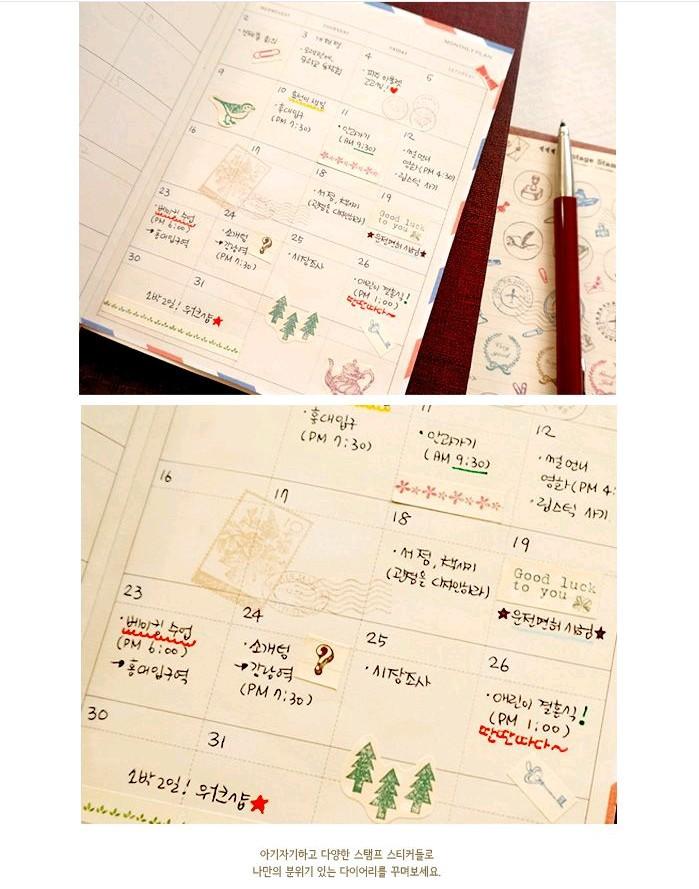 WEDNESDAY
THURSDAY
FRIDAY
SATURDAY
MONTHLY PLAN
2
3
4
5
9
10
·홍대입구
(PM 7:30)
11
·안과가기
(AM 9:30)
12
·썰언니
영화(PM 4:30)
·립스틱 사기
16
17
18
·서점, 책사기
(감정을 디자인하라)
19
Good luck
to you
★운전면허 시험★
23
·베이킹 수업
(PM 6:00)
→홍대입구역
24
·소개팅
→강남역
(PM 7:30)
?
25
·시장조사
26
·애린이 결혼식!
(PM 1:00)
딴딴따다~
30
31
1박2일! 워크샵★
Very
good
홍대입구
(PM 7:30)
11
·안과가기
(AM 9:30)
12
·썰언니
영화(PM 4:
·립스틱 사기
16
17
10
18
·서점, 책사기
(감정을 디자인하라)
19
Good luck
to you
★운전면허 시험★
23
·베이킹 수업
(PM 6:00)
→홍대입구역
24
·소개팅
→강남역
(PM 7:30)
?
25
·시장조사
26
·애린이 결혼식!
(PM 1:00)
딴딴따다~
30
31
1박2일! 워크샵★
아기자기하고 다양한 스탬프 스티커들로
나만의 분위기 있는 다이어리를 꾸며보세요.